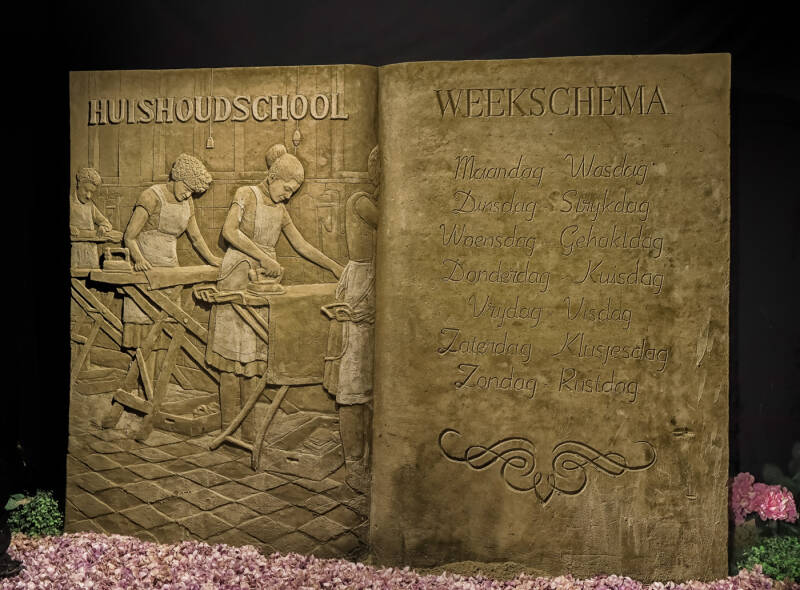 HUISHOUDSCHOOL
WEEKSCHEMA
Maandag Wasdag
Dinsdag Strijkdag
Woensdag Gehaktdag
Donderdag Kuisdag
Vrijdag Visdag
Zaterdag Klusjesdag
Zondag Rustdag